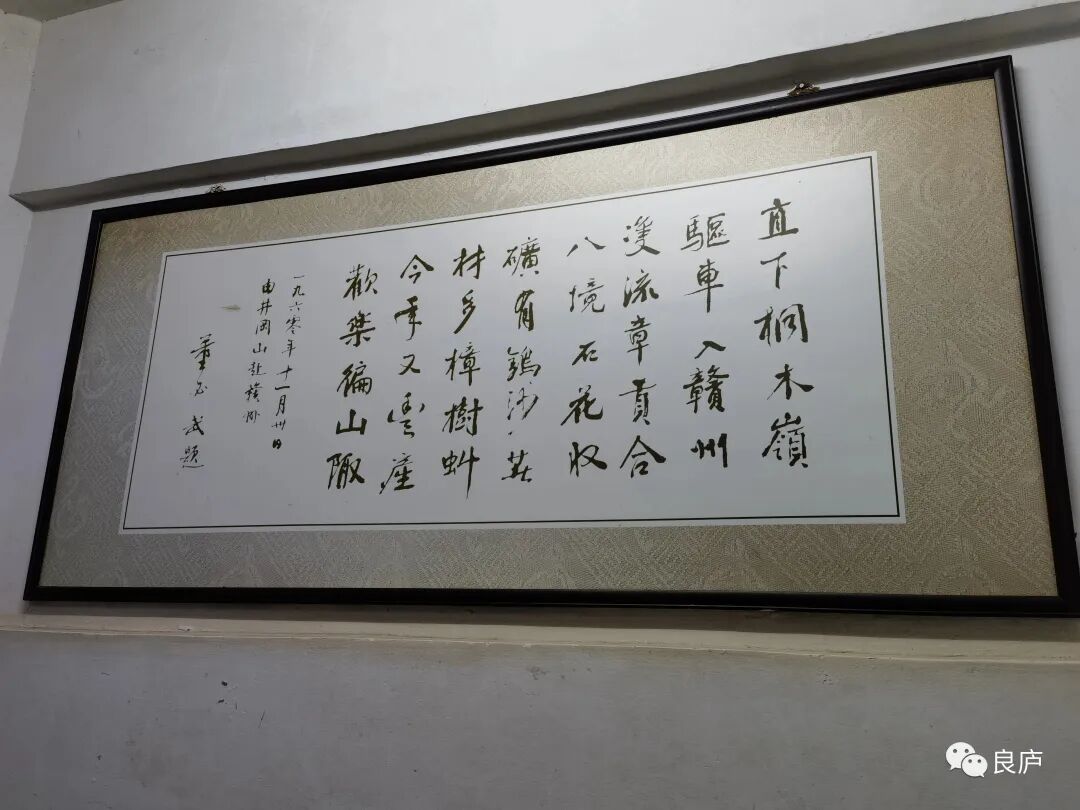 直下桐木嶺
驅車入贛州
雙流章貢合
八境石花收
礦有鎢沙茂
材多樟樹虯
今年又豐產
歡樂徧山陬
一九六零年十一月卅日
由井岡山赴贛州
董必武題
良庐